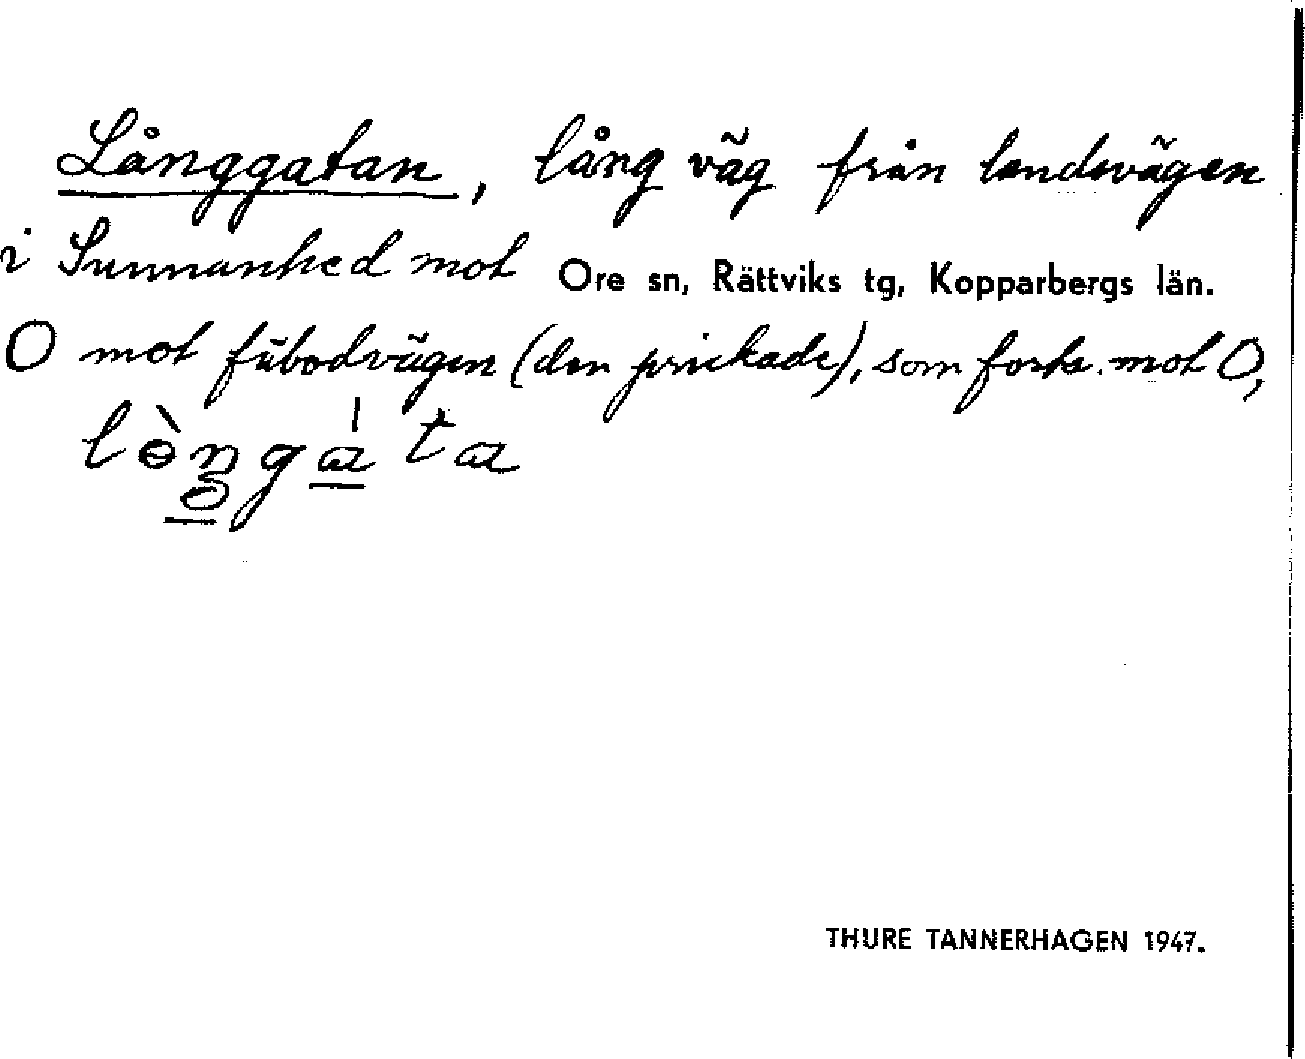 Långgatan, lång väg från landsvägen
i Sunnanhed mot Ore sn, Rättviks tg, Kopparbergs län.
O mot fäbodvägen (den prickade), som forts. mot O,
THURE TANNERHAGEN 1947.